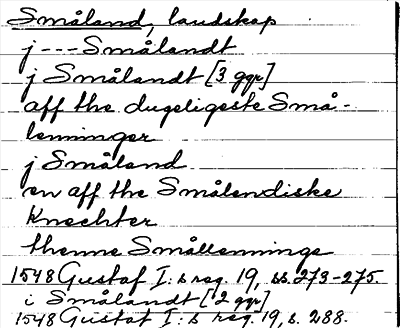 Småland, landskap
j --- Smålandt
j Smålandt [3 ggr]
aff the dugeligeste Små-
lenninger
j Småland
en aff the Smålendiske
Knechter
thenne Smållenninge
1548 Gustaf I:s reg. 19, ss. 273-275.
i Smålandt [2 ggr]
1548 Gustaf I:s reg. 19, s. 288.